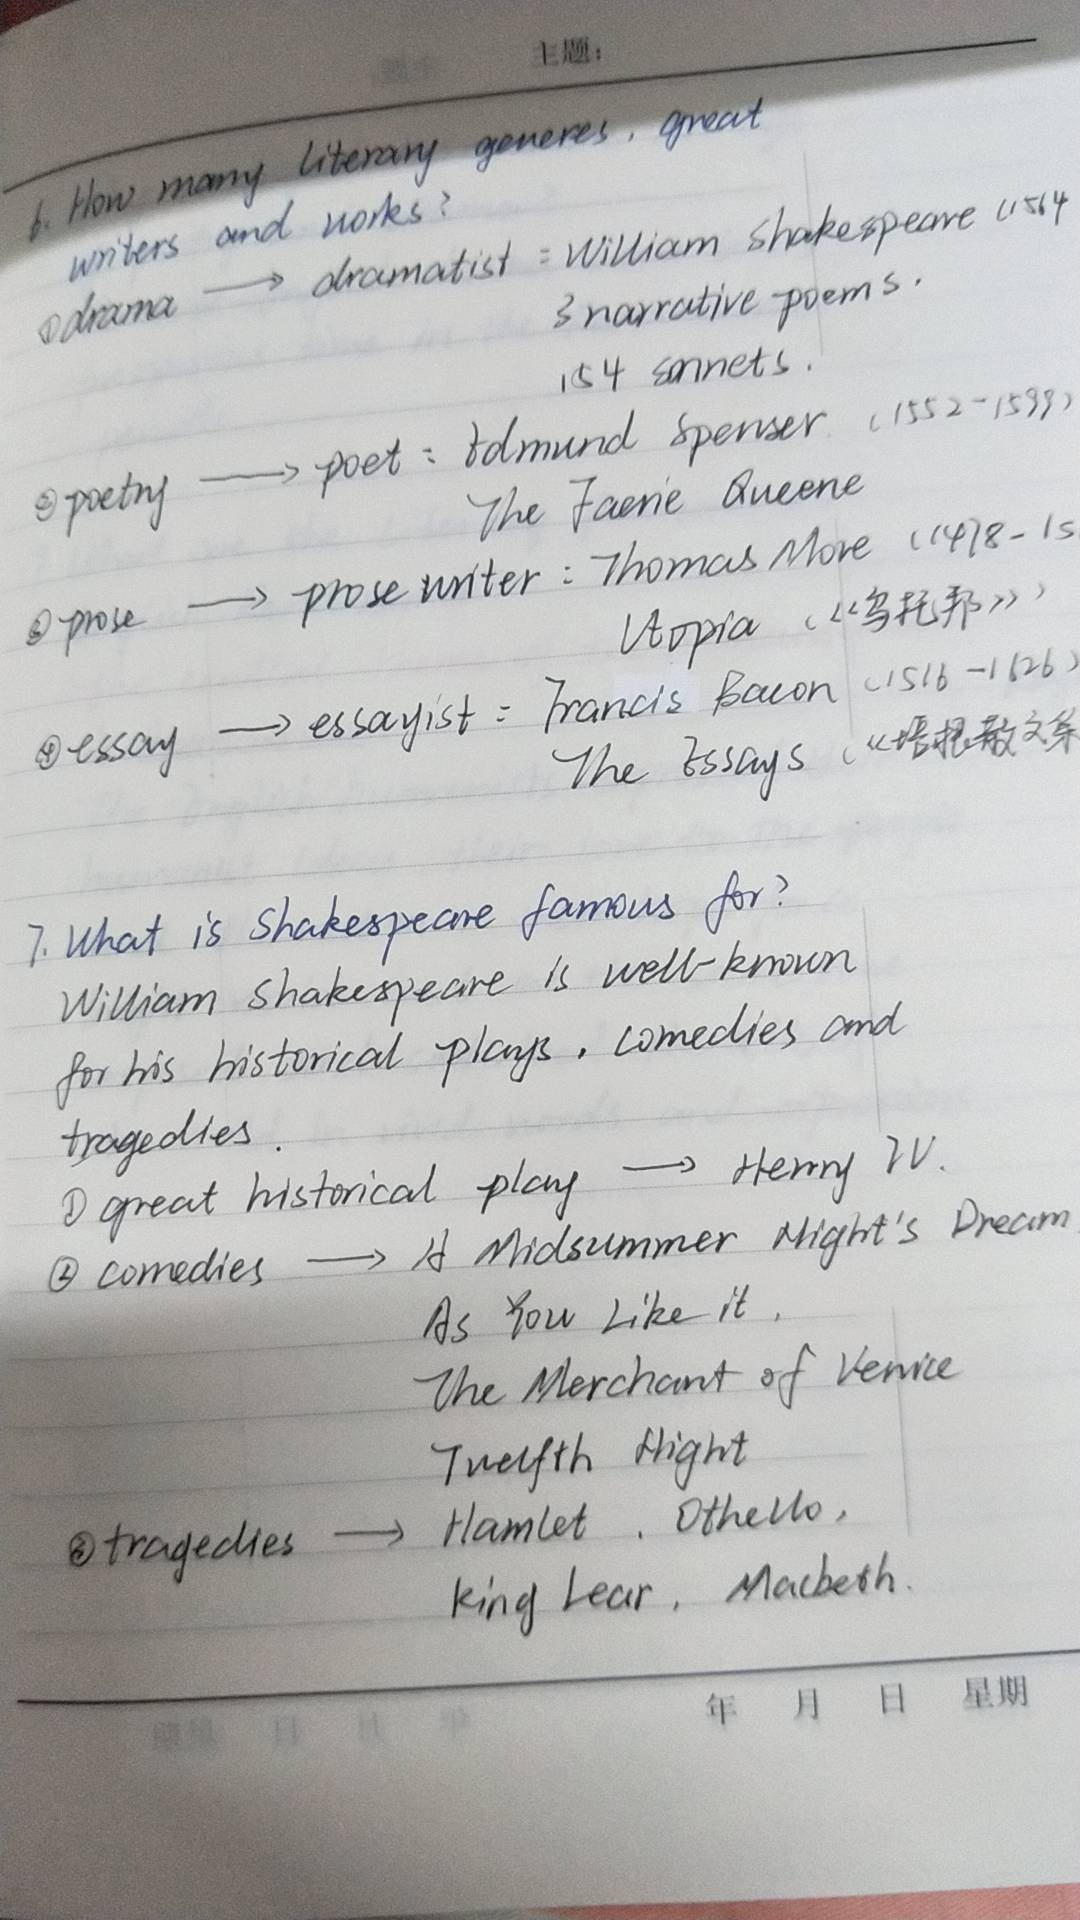 主题:
6. How many literary generes, great
writers and works?
①drama → dramatist : William Shakespeare (1564
3 narrative poems.
154 sonnets.
②poetry → poet : Edmund Spenser (1552-1599)
The Faerie Queene
③prose → prose writer : Thomas More (1478-15
Utopia (《乌托邦》)
④essay → essayist : Francis Bacon (1516-1626)
The Essays (《培根散文系
7. What is Shakespeare famous for?
William Shakespeare is well-known
for his historical plays, comedies and
tragedies.
① great historical play → Henry IV.
② comedies → A Midsummer Night's Dream
As You Like it,
The Merchant of Venice
Twelfth Night
③tragedies → Hamlet, Othello,
King Lear, Macbeth.
年 月 日 星期